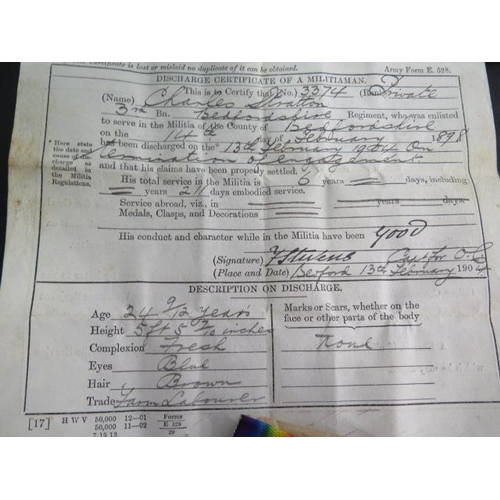 Certificate is lost or mislaid no duplicate of it can be obtained.
Army Form E. 528.
DISCHARGE CERTIFICATE OF A MILITIAMAN.
This is to Certify that (No.) 3374 (Rank) Private
(Name) Charles Stratton
3rd Bn. Bedfordshire Regiment, who was enlisted
to serve in the Militia of the County of Bedfordshire
on the 14th of February 1898
* Here state
the date and
cause of dis-
charge as
detailed in
the Militia
Regulations.
has been discharged on the* 13th February 1904 On
termination of engagement
and that his claims have been properly settled.
His total service in the Militia is 6 years days, including
years 211 days embodied service.
Service abroad, viz., in years days.
Medals, Clasps, and Decorations
His conduct and character while in the Militia have been good
(Signature) Stevens Capt for O.C
(Place and Date) Bedford 13th February 1904
DESCRIPTION ON DISCHARGE.
Age 24 9/12 years
Height 5 ft 5 inches
Complexion Fresh
Eyes Blue
Hair Brown
Trade Farm Labourer
Marks or Scars, whether on the
face or other parts of the body
None
[17] H W V 50,000 12—01 Forms
50,000 11—02 E 528